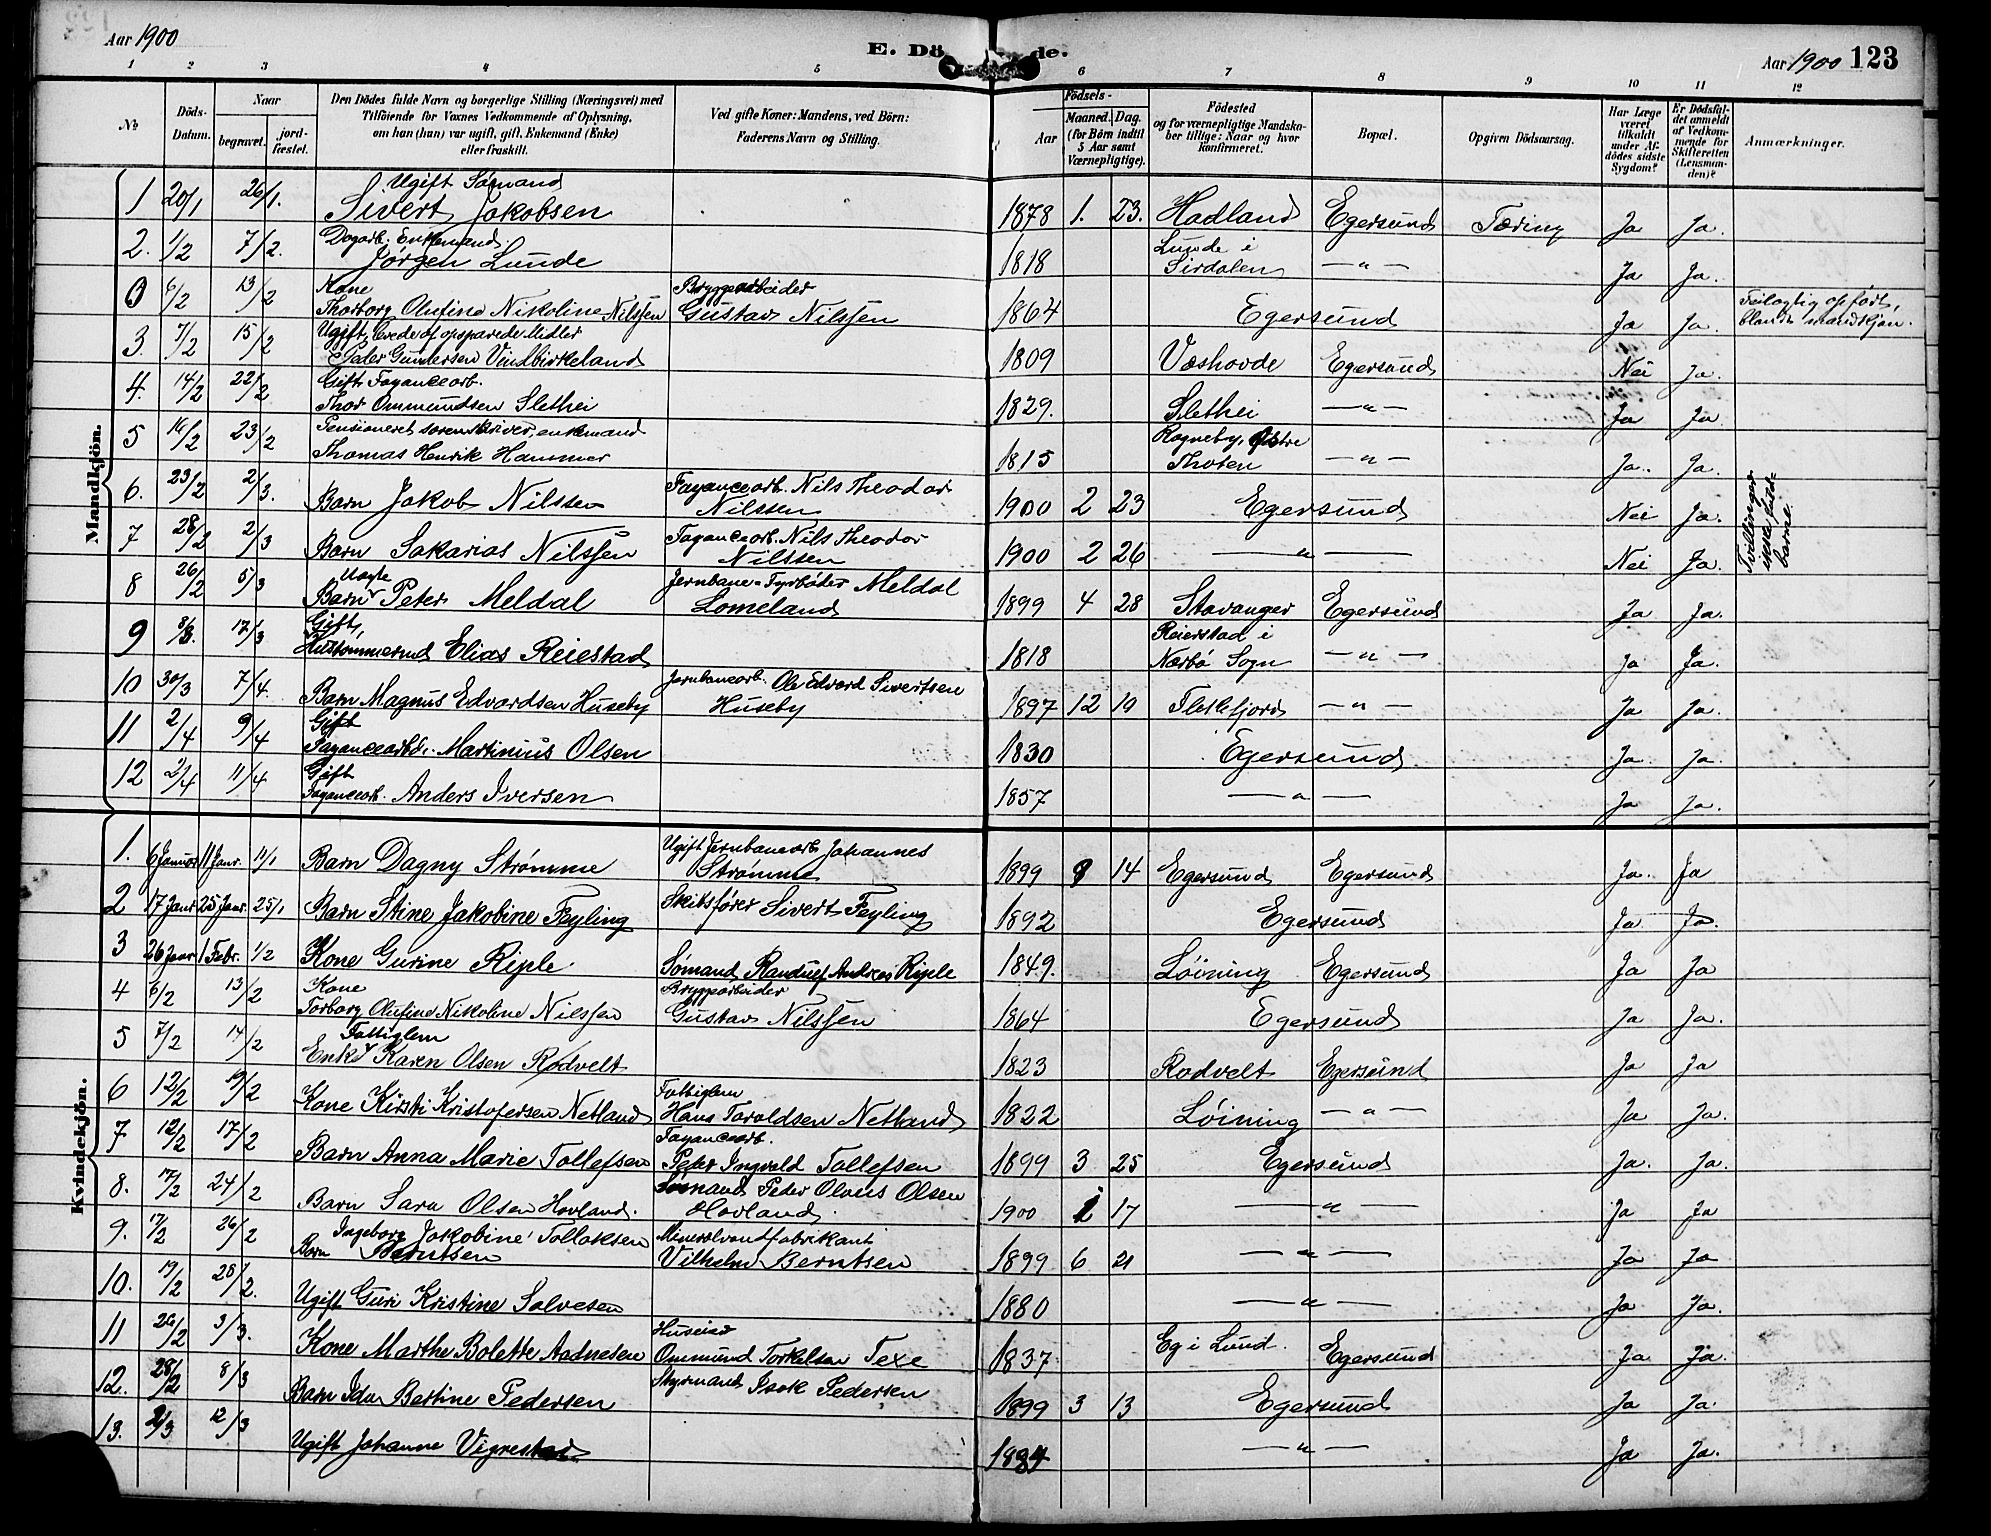 Aar 1900
E. Dö de.
Aar 1900 123
1 2 3 4 5 6 7 8 9 10 11 12
No
Döds-Datum.
Naar begravet. jordfæstet.
Den Dödes fulde Navn og borgerlige Stilling (Næringsvei) med
Tilföiende for Voxnes Vedkommende af Oplysning,
om han (hun) var ugift, gift, Enkemand (Enke)
eller fraskilt.
Ved gifte Koner: Mandens, ved Börn:
Faderens Navn og Stilling.
Födsels-
Aar Maaned. Dag.
(for Börn indtil 5 Aar samt Værnepligtige).
Födested
og for værnepligtige Mandskaber tillige: Naar og hvor konfirmeret.
Bopæl.
Opgiven Dödsaarsag.
Har Læge været tilkaldt under Afdödes sidste Sygdom?
Er Dödsfaldet anmeldt af Vedkommende for Skifteretten (Lensmanden)?
Anmærkninger.
Mandkjön.
Ugift Sømand
1 20/1 26/1. Sivert Jakobsen 1878 1. 23. Hadland Egersund Tæring Ja Ja.
Dagarb. Enkemand.
2. 1/2 7/2. Jørgen Lunde 1818 Lunde i Sirdalen — " — Ja Ja.
Kone Bryggearbeider
0 6/2 13/2 Thorborg Olufine Nikoline Nilssen Gustav Nilssen 1864 Egersund Ja Ja. Feilagtig opført, blandt mandskjøn.
Ugift, levede af opsparede Midler
3. 7/2 15/2 Peder Gundersen Vindbirkeland 1809 Væshovde Egersund Nei Ja.
Gift Fayancearb.
4. 14/2 22/2 Thor Ommundsen Slethei 1829. Slethei — " — Ja Ja
Pensioneret sorenskriver, enkemand
5 16/2 23/2 Thomas Henrik Hammer 1815 Rogneby, Østre Thoten — " — Ja. Ja.
6. 23/2 2/3. Barn Jakob Nilssen Fayancearb. Nils Theodor Nilssen 1900 2 23 Egersund Nei Ja.
7 28/2 2/3 Barn Sakarias Nilssen Fayancearb. Nils Theodor Nilssen 1900 2 26 — " — Nei Ja.
Tvillinger
barne.
Uægte
8 26/2 5/3 Barn Peter Meldal Jernbane-Fyrbøder Meldal Lomeland 1899 4 28 Stavanger Egersund Ja Ja.
Gift,
9 8/3. 17/3 Hustømmermd Elias Reiestad 1818 Reierstad i Nærbø Sogn — " — Ja Ja.
10 30/3 7/4. Barn Magnus Edvardsen Huseby Jernbanearb. Ole Edvard Sivertsen Huseby 1897 12 19 Flekkefjord — " — Ja Ja.
Gift
11 2/4 9/4 Fayancearbd. Martinius Olsen 1830 Egersund Ja. Ja.
Gift
12 2/4 11/4 Fayancearb. Anders Iversen 1857 — " — Ja Ja.
Kvindekjön.
1. 6 Januar 11 Janr. 11/1 Barn Dagny Strømme Ugift Jernbanearb Johannes Strømme 1899 9 14 Egersund Egersund Ja. Ja
2 17 Janr 25 Janr. 25/1 Barn Stine Jakobine Feyling Skibsfører Sivert Feyling 1892 Egersund Ja Ja.
3 26 Janr 1 Febr. 1/2 Kone Gurine Riple Sømand Randulf Andreas Riple 1849. Løining Egersund Ja Ja
Kone Bryggearbeider
4 6/2 13/2 Torborg Olufine Nikoline Nilssen Gustav Nilssen 1864 Egersund Ja Ja.
Fattiglem
5 7/2 14/2 Enke Karen Olsen Rødvelt 1823 Rodvelt Egersund Ja Ja
6 12/2 19/2 Kone Kirsti Kristofersen Netland Fattiglem Hans Taraldsen Netland 1822 Løining — " — Ja Ja.
7 12/2 17/2 Barn Anna Marie Tollefsen Fayancearb. Peter Ingvald Tollefsen 1899 3 25 Egersund Ja. Ja.
8. 17/2 24/2 Barn Sara Olsen Hovland. Sømand Peder Olaus Olsen Hovland. 1900 1 17 — " — Ja Ja
9. 17/2 26/2 Barn Ingeborg Jakobine Tollaksen Berntsen Mineralvandfabrikant Vilhelm Berntsen 1899 6 21 — " — Ja Ja
10. 19/2 28/2. Ugift Guri Kristine Salvesen 1880 — " — Ja Ja.
11 26/2 3/3. Kone Marthe Bolette Aadnesen Huseier Ommund Torkelsen Texe 1837 Eg i Lund. Egersund Ja Ja.
12. 28/2 8/3 Barn Ida Bertine Pedersen Styrmand Isak Pedersen 1899 3 13 Egersund Ja Ja.
13. 2/3 12/3 Ugift Johanne Vigrestad. 1884 — " — Ja Ja.